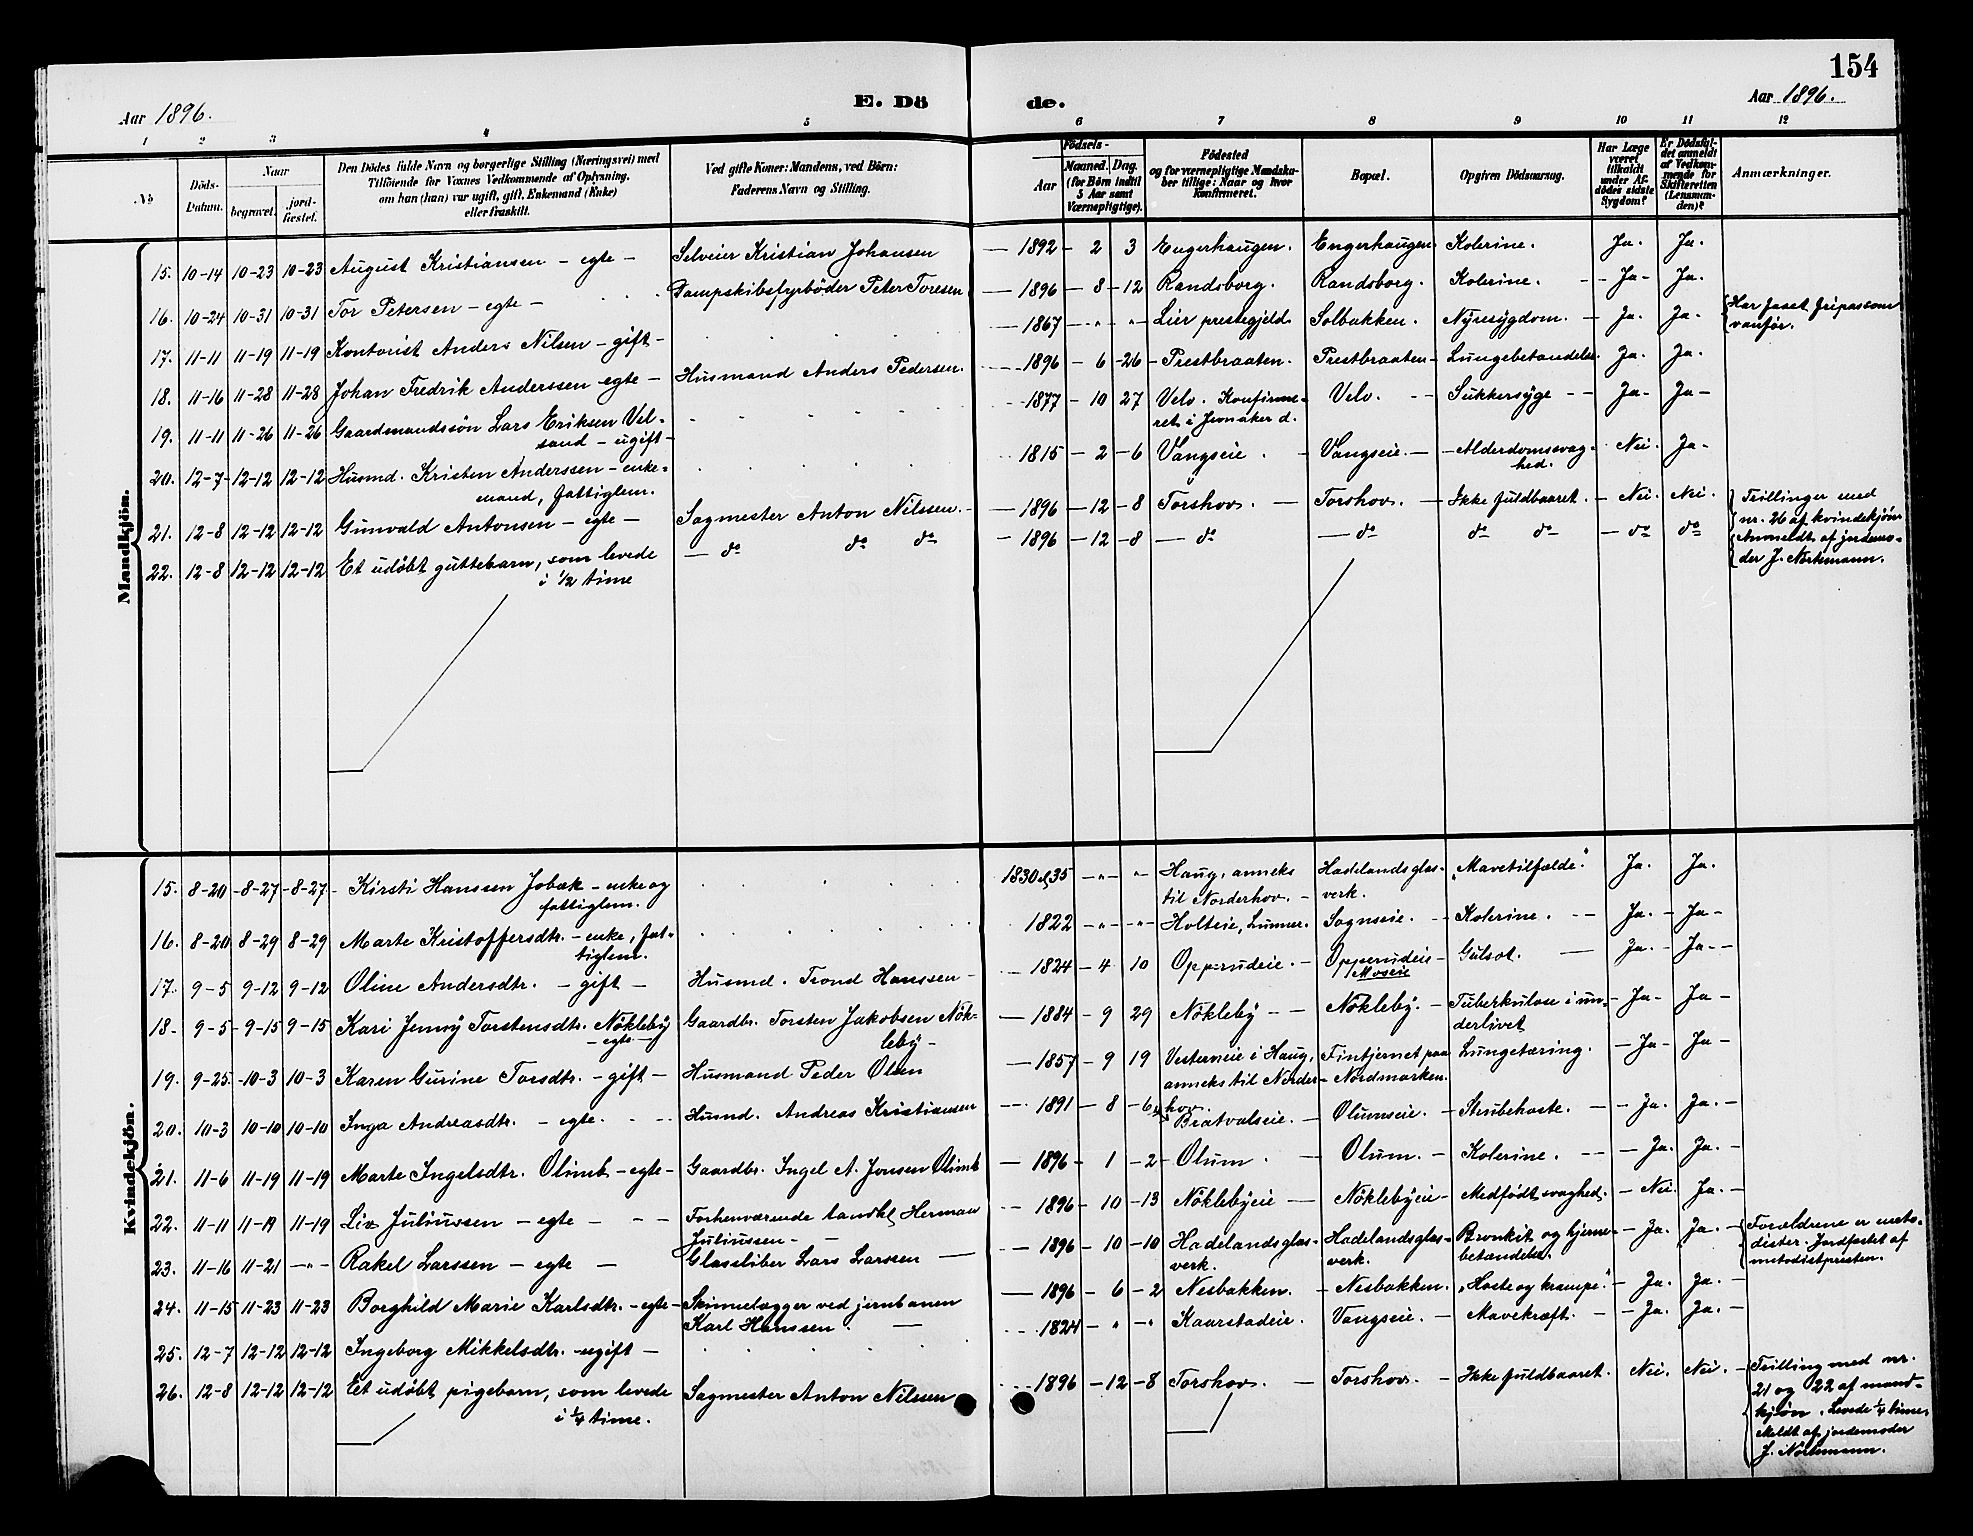 154
Aar 1896.
E. Dö
de.
Aar 1896.
1 2 3 4 5 6 7 8 9 10 11 12
No
Döds-Datum.
Naar
begravet.
jord-fæstet.
Den Dödes fulde Navn og borgerlige Stilling (Næringsvei) med
Tilföiende for Voxnes Vedkommende af Oplysning,
om han (hun) var ugift, gift, Enkemand (Enke)
eller fraskilt.
Ved gifte Koner: Mandens, ved Börn:
Faderens Navn og Stilling.
Födsels-
Aar
Maaned. Dag.
(for Børn indtil
5 Aar samt
Værnepligtige).
Födested
og for værnepligtige Mandska-
ber tillige: Naar og hvor
konfirmeret.
Bopæl.
Opgiven Dödsaarsag.
Har Læge
været
tilkaldt
under Af-
dödes sidste
Sygdom?
Er Dödsfal-
det anmeldt
af Vedkom-
mende for
Skifteretten
(Lensman-
den)?
Anmærkninger.
Mandkjön.
15. 10-14 10-23 10-23 August Kristiansen - egte - Selveier Kristian Johansen - 1892 - 2 3 Engerhaugen. Engerhaugen Kolerine. Ja. Ja.
16. 10-24 10-31 10-31 Tor Petersen - egte - Dampskibsfyrböder Peter Toresen - 1896 - 8 - 12 Randsborg. Randsborg. Kolerine. - Ja - Ja.
17. 11-11 11-19 11-19 Kontorist Anders Nilsen - gift - - 1867 - " - " - Lier prestegjeld. Solbakken. Nyresygdom. - Ja. Ja. Har faaet fripas som
vanför.
18. 11-16 11-28 11-28 Johan Fredrik Anderssen - egte - Husmand Anders Pedersen. - 1896 - 6 - 26 - Prestbraaten. Prestbraaten - Lungebetændelse. Ja. Ja.
19. 11-11 11-26 11-26 Gaardmandssön Lars Eriksen Vel-
sand - ugift - - 1877 - 10 27 Velo. Konfirme-
ret i Jevnaker d. Velo. - Sukkersyge - Ja - Ja -
20. 12-7 12-12 12-12 Husmd. Kristen Anderssen - enke-
mand, fattiglem. 1815 - 2 - 6 Vangseie. - Vangseie. - Alderdomssvag-
hed. Nei. Ja -
21. 12-8 12-12 12-12 Gunvald Antonsen - egte - Sagmester Anton Nilssen. - 1896 - 12 - 8 Torshov. - Torshov. - Ikke fuldbaaret. - Nei. Nei. Trillinger med
nr. 26 af kvindekjön
22. 12-8 12-12 12-12 Et udöbt guttebarn, som levede
i 1/2 time - do do do - 1896 - 12 - 8 - do - do do do - do do Anmeldt af jordemo-
der J. Nortemann.
Kvindekjön.
15. 8-20 8-27 8-27 Kirsti Hanssen Jobak - enke og
fattiglem. 1830 el. 35 - " - " - Haug, anneks
til Norderhov. - Hadelandsglas-
verk. „Mavetilfælde". Ja. Ja.
16. 8-20 8-29 8-29 Marte Kristoffersdtr. - enke, fat-
tiglem. 1822 - " - " - Holteie, Lunner. Sognseie. - Kolerine. - Ja. - Ja -
17. 9-5 9-12 9-12 Oline Andersdtr. - gift - Husmd. Trond Hanssen - - 1824 - 4 10 Opperudeie. - Opperudeie -
Moseie Gulsot. - Ja. - Ja -
18. 9-5 9-15 9-15 Kari Jenny Torstensdtr. Nökleby
- egte - Gaardbr. Torsten Jakobsen Nök-
leby - - 1884 - 9 29 Nökleby - - Nökleby. - Tuberkulose i un-
derlivet - Ja - Ja -
19. 9-25 10-3 10-3 Karen Gurine Torsdtr. - gift - Husmand Peder Olsen - 1857 - 9 19 Vesterneie i Haug,
anneks til Norder-
hov. Fintjernet paa
Nordmarken. Lungetæring. - Ja - Ja -
20. 10-3 10-10 10-10 Inga Andreasdtr. - egte. - Husmd. Andreas Kristiansen - 1891 - 8 - 6 Bratvalseie. - Olumseie. - Strubehoste. - Ja. Ja. -
21. 11-6 11-19 11-19 Marte Ingelsdtr. Olimb - egte - Gaardbr. Ingel A. Jonsen Olimb - 1896 - 1 - 2 - Olum. - Olum. - Kolerine. - Ja. Ja. -
22. 11-11 11-19 11-19 Liv Juliussen - egte - Forhenværende landhl. Herman
Juliussen - - 1896 - 10 - 13 Nöklebyeie - Nöklebyeie - Medfödt svaghed. - Nei. Ja. -
23. 11-16 11-21 - " - Rakel Larssen - egte - Glassliber Lars Larssen - - 1896 - 10 - 10 Hadelandsglas-
verk. Hadelandsglas-
verk. Bronkit og hjerne-
betændelse. - Ja. Ja. - Forældrene er meto-
dister. Jordfæstet af
metodistpresten.
24. 11-15 11-23 11-23 Borghild Marie Karlsdtr. - egte - Skinnelægger ved jernbanen
Karl Hanssen. - - 1896 - 6 - 2 Nesbakken. - Nesbakken. „Hoste og krampe". - Ja. Ja. -
25. 12-7 12-12 12-12 Ingeborg Mikkelsdtr. - ugift - - 1824 - " - " Kaarstadeie. Vangseie. - Mavekræft. - - Ja. Ja. -
26. 12-8 12-12 12-12 Et udöbt pigebarn, som levede
i 1/4 time. Sagmester Anton Nilssen - 1896 - 12 - 8 Torshov. - Torshov. - Ikke fuldbaaret. Nei. Nei. - Trilling med nr.
21 og 22 af mand-
kjön. Levede 1/4 time.
Meldt af jordemoder
J. Nortemann.